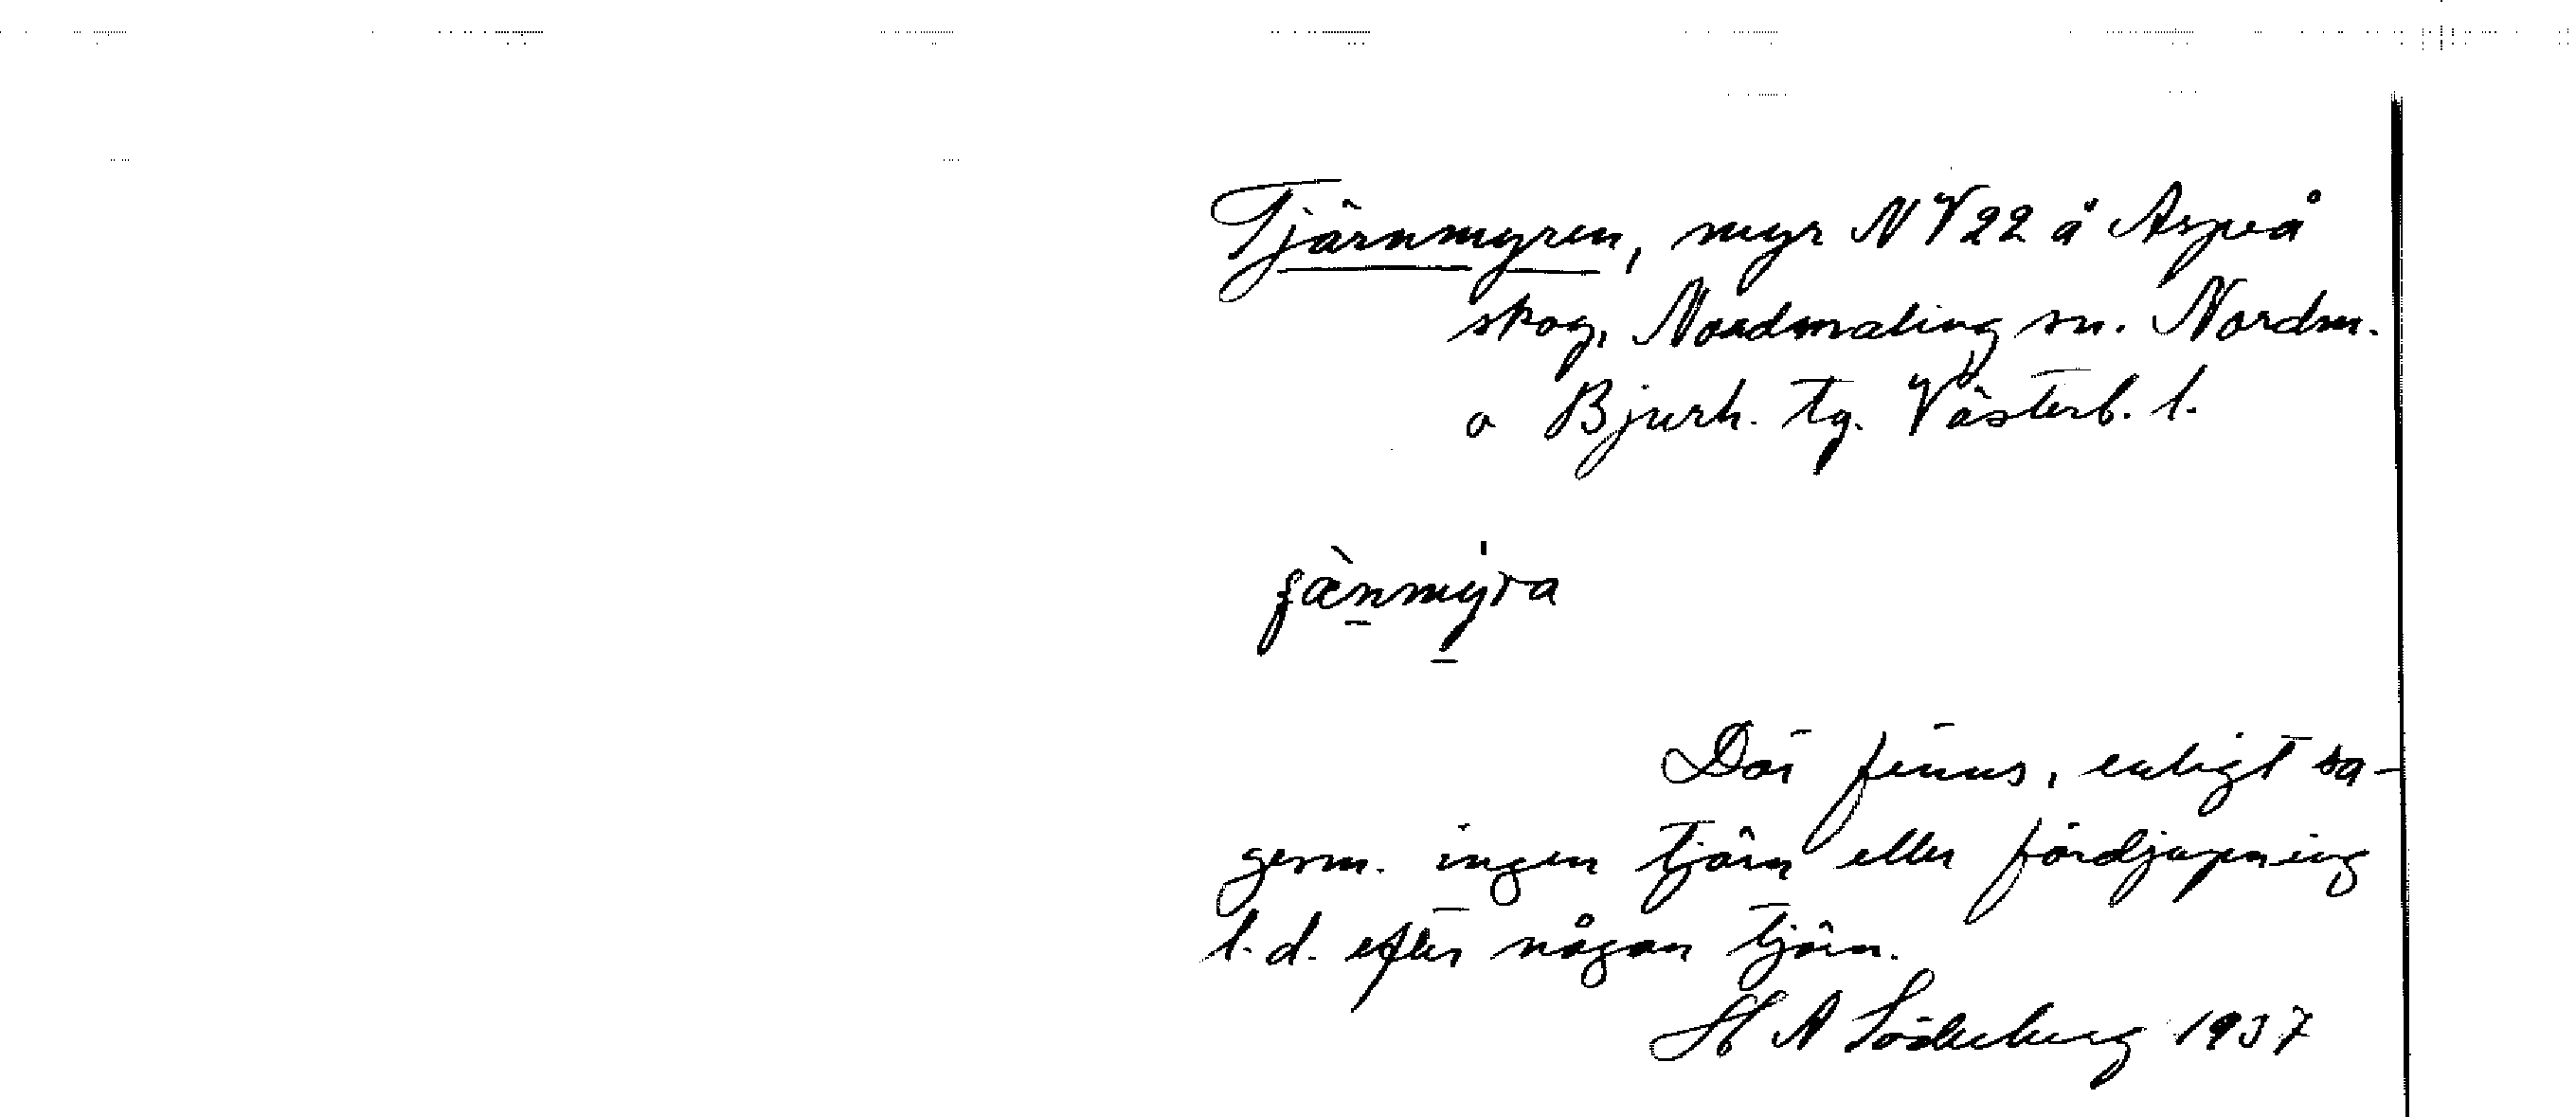 Tjärnmyren, myr NV22 å Aspeå
skog, Nordmaling sn. Nordm.
o Bjurh. tg. Västerb. l.
fæ̀nmýra
Där finns, enligt sa-
gesm. ingen tjärn eller fördjupning
l.d. efter någon tjärn.
H A Söderberg 1937